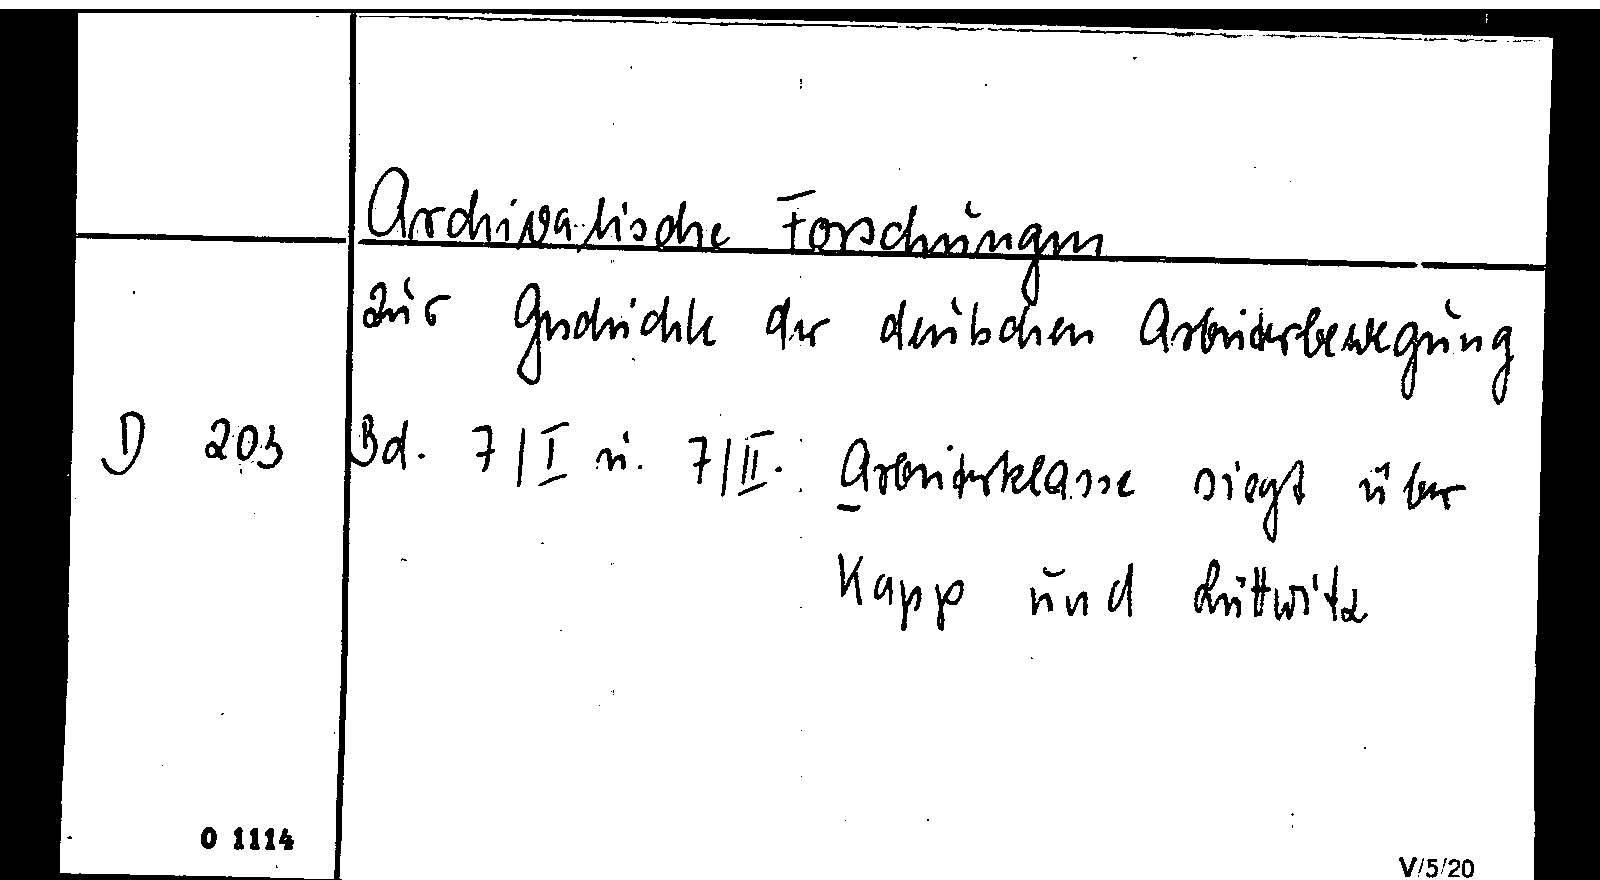 Archivalische Forschungen
zur Geschichte der deutschen Arbeiterbewegung
D 203 Bd. 7/I u. 7/II. Arbeiterklasse siegt über
Kapp und Lüttwitz
O 1114
V/5/20